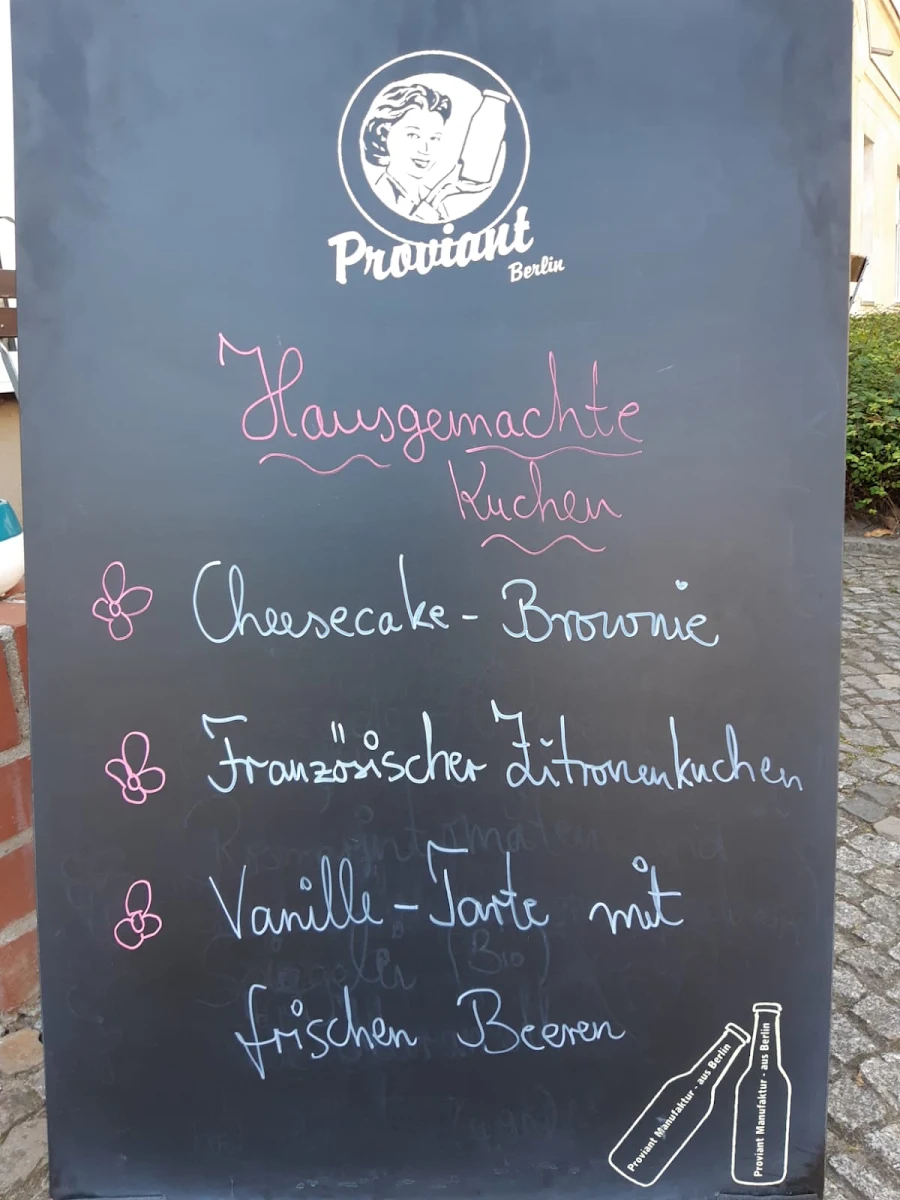 Proviant
Berlin
Hausgemachte
Kuchen
Cheesecake - Brownie
Französischer Zitronenkuchen
Vanille - Tarte mit
frischen Beeren
Proviant Manufaktur - aus Berlin
Proviant Manufaktur - aus Berlin